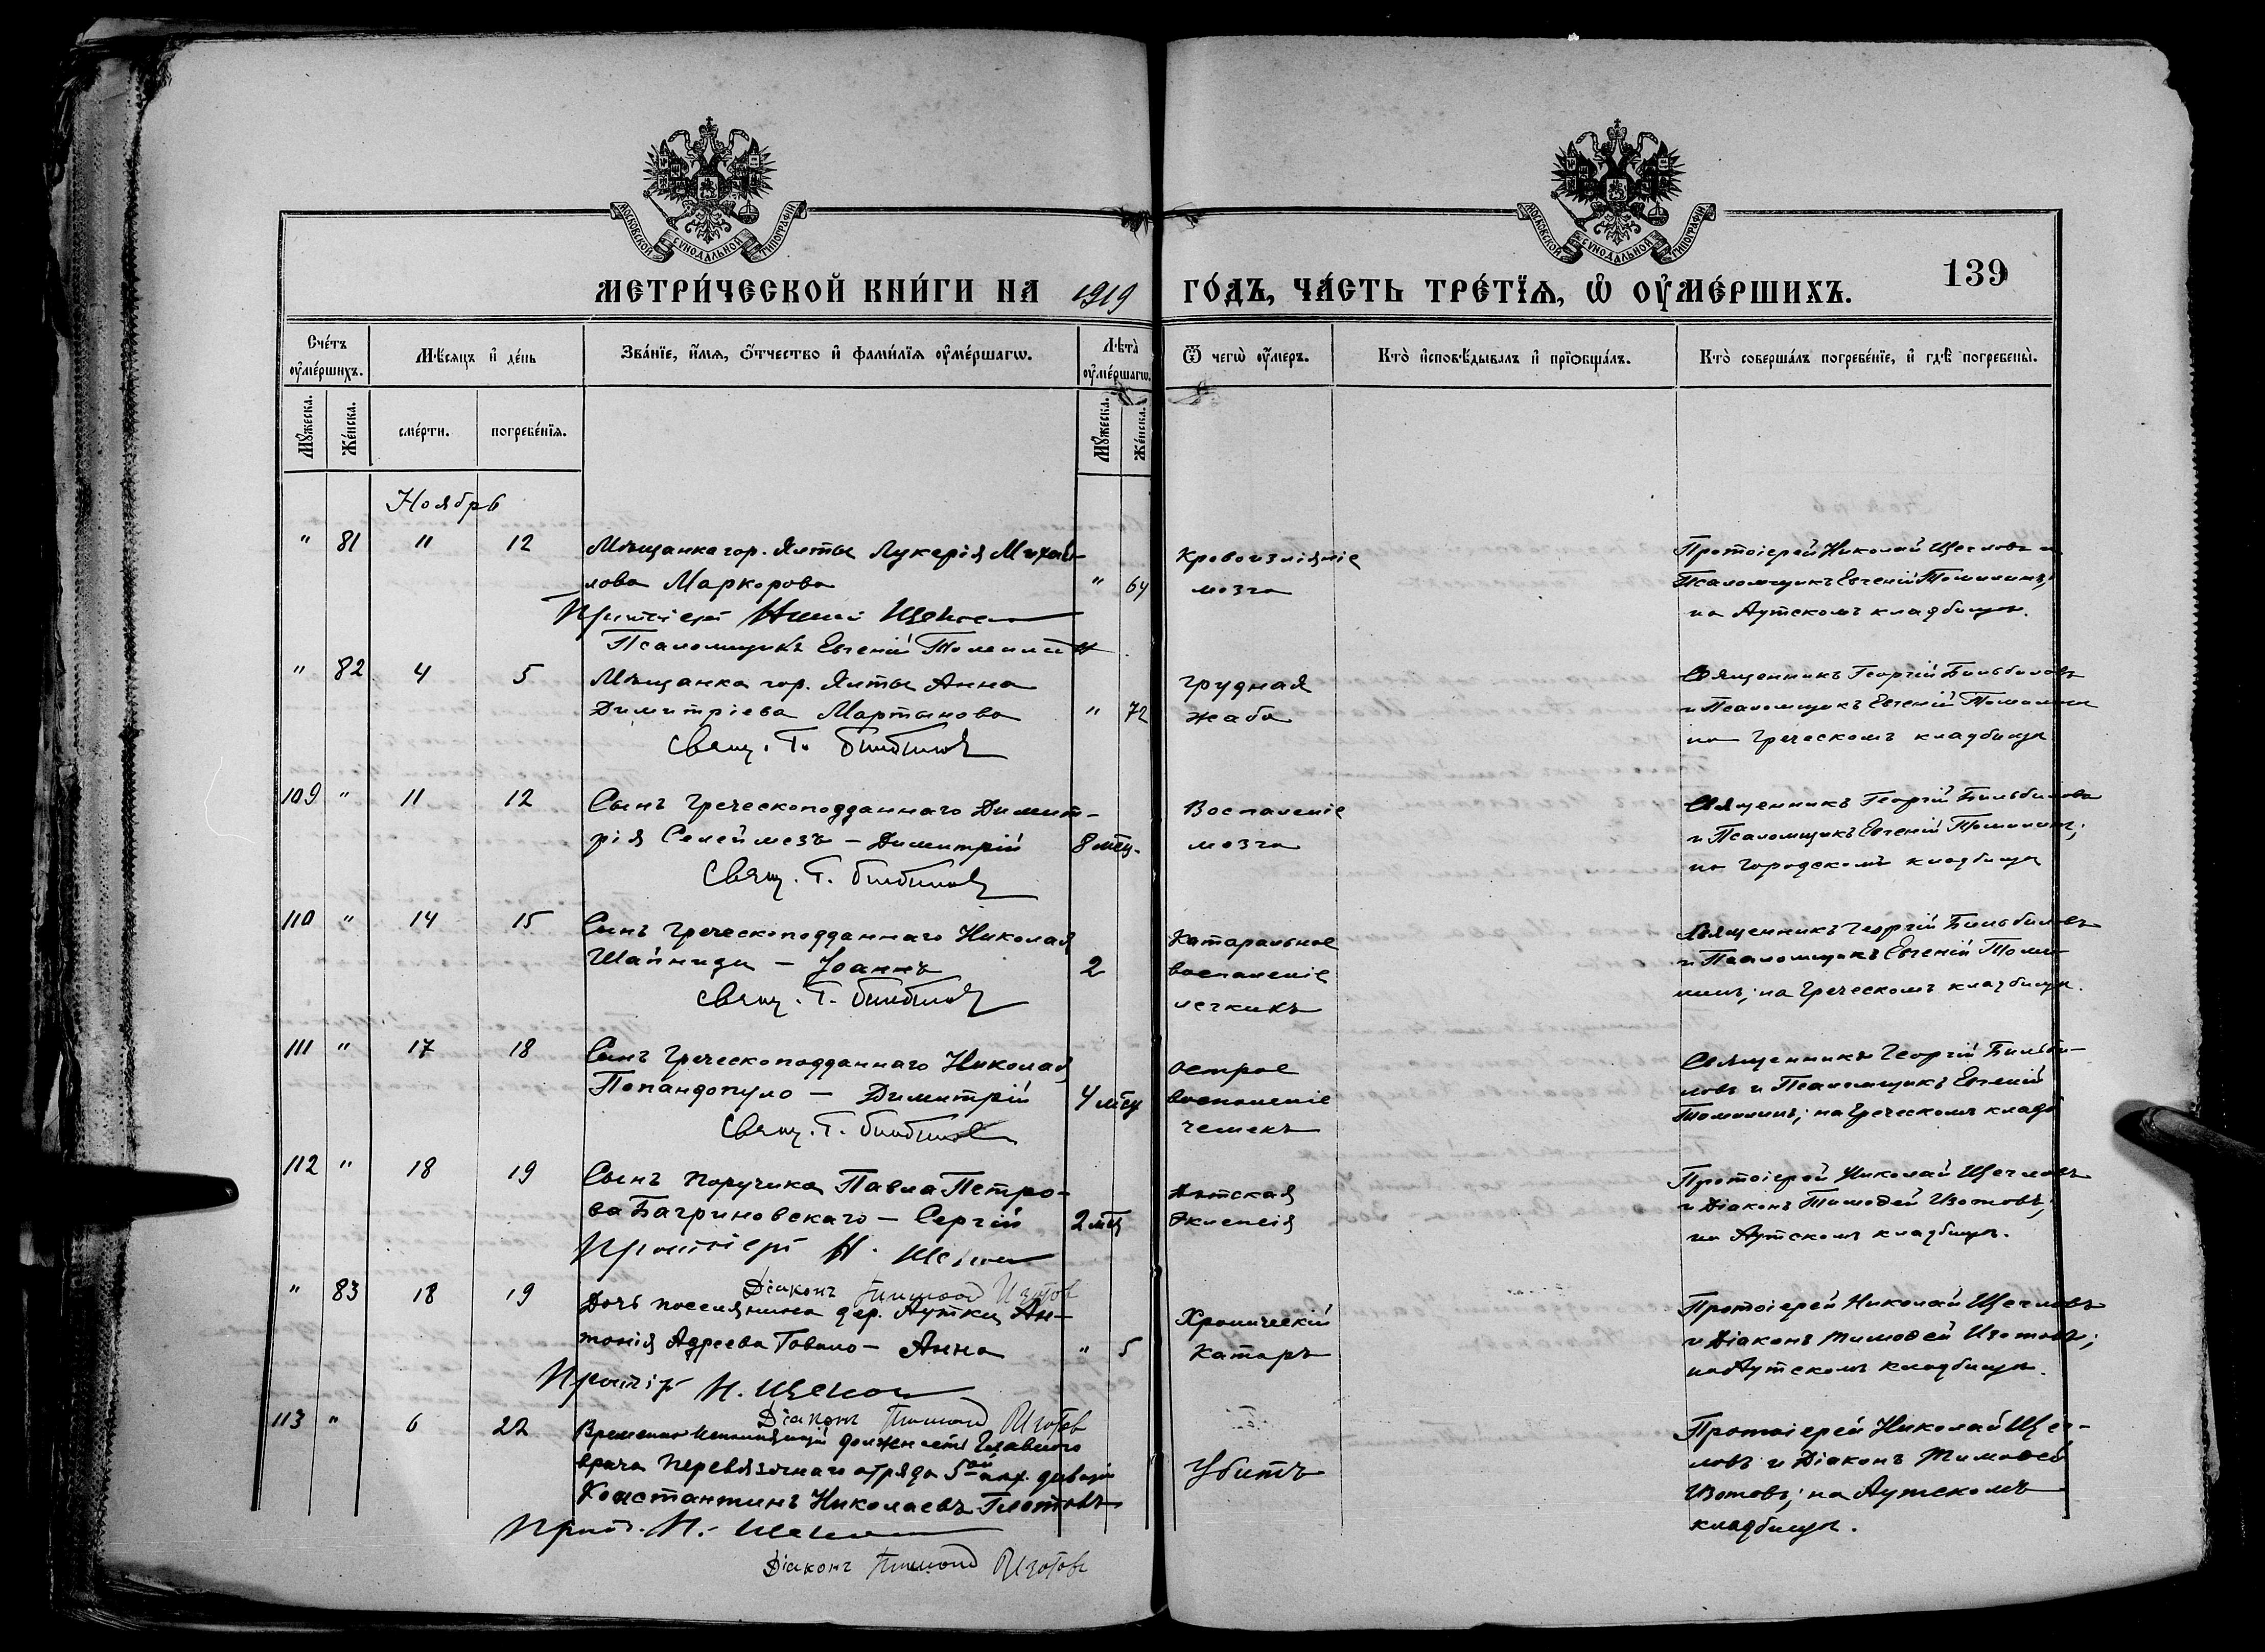 МОСКОВСКОЙ СѴНОДАЛЬНОЙ ТИПОГРАФІИ
МОСКОВСКОЙ СѴНОДАЛЬНОЙ ТИПОГРАФІИ
139
МЕТРИ́ЧЕСКОЙ КНИ́ГИ НА 1919 ГО́ДЪ, ЧА́СТЬ ТРЕ́ТЇѦ, Ѡ҆ ОУ҆МЕ́РШИХЪ.
Сче́тъ оу҆ме́ршихъ.
Мѣ́сяцъ и҆ де́нь
Зва́нїе, и҆́мѧ, ѻ҆́тчество и҆ фами́лїѧ оу҆ме́ршагѡ.
Лѣ́та оу҆ме́ршагѡ.
Ѿ чегѡ̀ оу҆́меръ.
Кто̀ и҆сповѣ́дывалъ и҆ прїѻбща́лъ.
Кто̀ соверша́лъ погребе́нїе, и҆ гдѣ̀ погребены̀.
Мꙋ́жеска.
Же́нска.
сме́рти.
погребе́нїѧ.
Мꙋ́жеска.
Же́нска.
Ноябрь
" 81 11 12 Мѣщанка гор. Ялты Лукерія Михай-
лова Маркорова " 64
Протоіерей
Псаломщикъ Евгеній Томилинъ
Кровоизліяніе
мозга
Протоіерей Николай Щегловъ и
Псаломщикъ Евгеній Томилинъ;
на Аутскомъ кладбищѣ.
" 82 4 5 Мѣщанка гор. Ялты Анна
Димитріева Мартынова " 72
Свящ. Г. Бильбиловъ
Грудная
жаба
Священникъ Георгій Бильбиловъ
и Псаломщикъ Евгеній Томилинъ
на Греческомъ кладбищѣ
109 " 11 12 Сынъ Греческоподданнаго Димит-
рія Селеймезъ – Димитрій 8 мѣц.
Свящ. Г. Бильбиловъ
Воспаленіе
мозга
Священникъ Георгій Бильбиловъ
и Псаломщикъ Евгеній Томилинъ;
на городскомъ кладбищѣ
110 " 14 15 Сынъ Греческоподданнаго Николая
Шайниди – Іоаннъ 2
Свящ. Г. Бильбиловъ
Катаральное
воспаленіе
легкихъ
Священникъ Георгій Бильбиловъ
и Псаломщикъ Евгеній Томи-
линъ; на Греческомъ кладбищѣ.
111 " 17 18 Сынъ Греческоподданнаго Николая
Попандопуло – Димитрій 4 мѣц
Свящ. Г. Бильбиловъ
Острое
воспаленіе
Священникъ Георгій Бильби-
ловъ и Псаломщикъ Евгеній
Томилинъ; на Греческомъ кладб
112 " 18 19 Сынъ Поручика Павла Петро-
ва Багриновскаго – Сергій 2 мѣц
Протоіерей Н. Щегловъ
Діаконъ Тимоѳей Изотов
Дѣтская
Протоіерей Николай Щегловъ
и Діаконъ Тимоѳей Изотовъ;
на Аутскомъ кладбищѣ.
" 83 18 19 Дочь поселянина дер. Аутки Ан-
тонія Адреева – Анна " 5
Н. Щегловъ
Діаконъ Тимоѳей Изотов
Хроническій
Катаръ
Протоіерей Николай Щегловъ
и Діаконъ Тимоѳей Изотовъ;
на Аутскомъ кладбищѣ.
113 " 6 22 Временно Исполняющій должность Главнаго
врача Перевязочнаго отряда 5ой пѣх. дивизіи
Константинъ Николаевъ Глотовъ
Прот. Н. Щегловъ
Діаконъ Тимоѳей Изотовъ
Убитъ
Протоіерей Николай Щег-
ловъ и Діаконъ Тимоѳей
Изотовъ; на Аутскомъ
кладбищѣ.